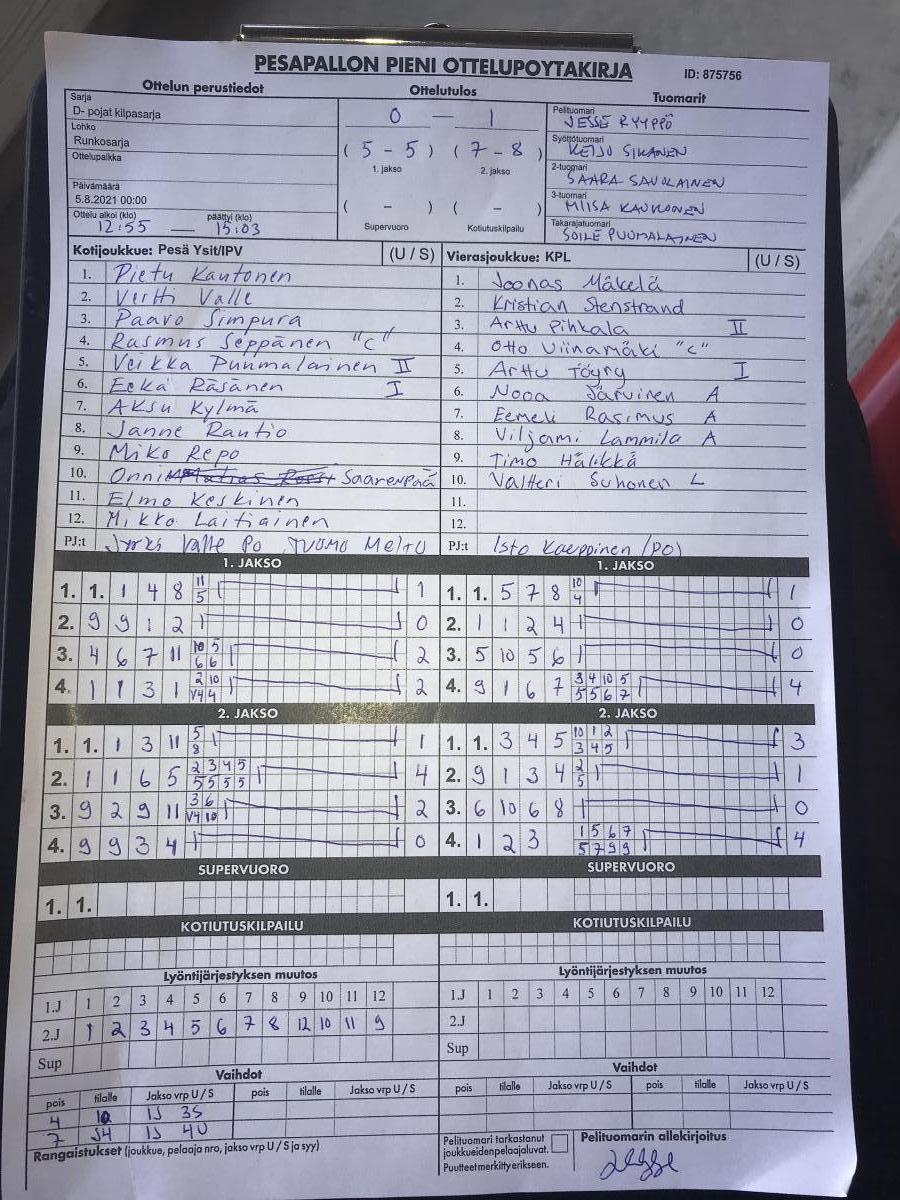 PESAPALLON PIENI OTTELUPOYTAKIRJA
ID: 875756
Ottelun perustiedot
Sarja
D- pojat kilpasarja
Lohko
Runkosarja
Ottelupaikka
Päivämäärä
5.8.2021 00:00
Ottelu alkoi (klo) päättyi (klo)
12:55 — 15:03
Ottelutulos
0 — 1
( 5 - 5 ) ( 7 - 8 )
1. jakso 2. jakso
( - ) ( - )
Supervuoro Kotiutuskilpailu
Tuomarit
Pelituomari
JESSE RYYPPÖ
Syöttötuomari
KEIJO SIKANEN
2-tuomari
SAARA SAVOLAINEN
3-tuomari
MIISA KAUKONEN
Takarajatuomari
SOILE PUUMALAINEN
Kotijoukkue: Pesä Ysit/IPV (U / S)
1. Pietu Kautonen
2. Vertti Valle
3. Paavo Simpura
4. Rasmus Seppänen "C"
5. Veikka Puumalainen II
6. Eeka Räsänen I
7. Aksu Kylmä
8. Janne Rautio
9. Miko Repo
10. Onni Saarenpää
11. Elmo Keskinen
12. Mikko Laitiainen
PJ:t Valle Po TUOMO
Vierasjoukkue: KPL (U / S)
1. Joonas Mäkelä
2. Kristian Stenstrand
3. Arttu Pihkala II
4. Otto Viinamäki "C"
5. Arttu Töyry I
6. Nooa Järvinen A
7. Eemeli Rasimus A
8. Viljami Lammila A
9. Timo Hälikkä
10. Valtteri Suhonen L
11.
12.
PJ:t Isto Kaeppinen (PO)
1. JAKSO
1. 1. 1 4 8 11 1
5
2. 9 9 1 2 0
3. 4 6 7 11 10 5 2
6 6
4. 1 1 3 1 2 10 2
V4 4
1. JAKSO
1. 1. 5 7 8 10 1
4
2. 1 1 2 4 0
3. 5 10 5 6 0
4. 9 1 6 7 3 4 10 5 4
5 5 6 7
2. JAKSO
1. 1. 1 3 11 5 1
8
2. 1 1 6 5 2 3 4 5 4
5 5 5 5
3. 9 2 9 11 3 6 2
V4 10
4. 9 9 3 4 0
2. JAKSO
1. 1. 3 4 5 10 1 2 3
3 4 5
2. 9 1 3 4 2 1
5
3. 6 10 6 8 0
4. 1 2 3 1 5 6 7 4
5 7 9 9
SUPERVUORO
1. 1.
SUPERVUORO
1. 1.
KOTIUTUSKILPAILU
KOTIUTUSKILPAILU
Lyöntijärjestyksen muutos
1.J 1 2 3 4 5 6 7 8 9 10 11 12
2.J 1 2 3 4 5 6 7 8 12 10 11 9
Sup
Lyöntijärjestyksen muutos
1.J 1 2 3 4 5 6 7 8 9 10 11 12
2.J
Sup
Vaihdot
pois tilalle Jakso vrp U / S pois tilalle Jakso vrp U / S
4 10 1J 3S
7 J4 1J 4U
Vaihdot
pois tilalle Jakso vrp U / S pois tilalle Jakso vrp U / S
Rangaistukset (joukkue, pelaaja nro, jakso vrp U / S ja syy)
Pelituomari tarkastanut
joukkueidenpelaajaluvat.
Puutteet merkitty erikseen.
Pelituomarin allekirjoitus
Jesse